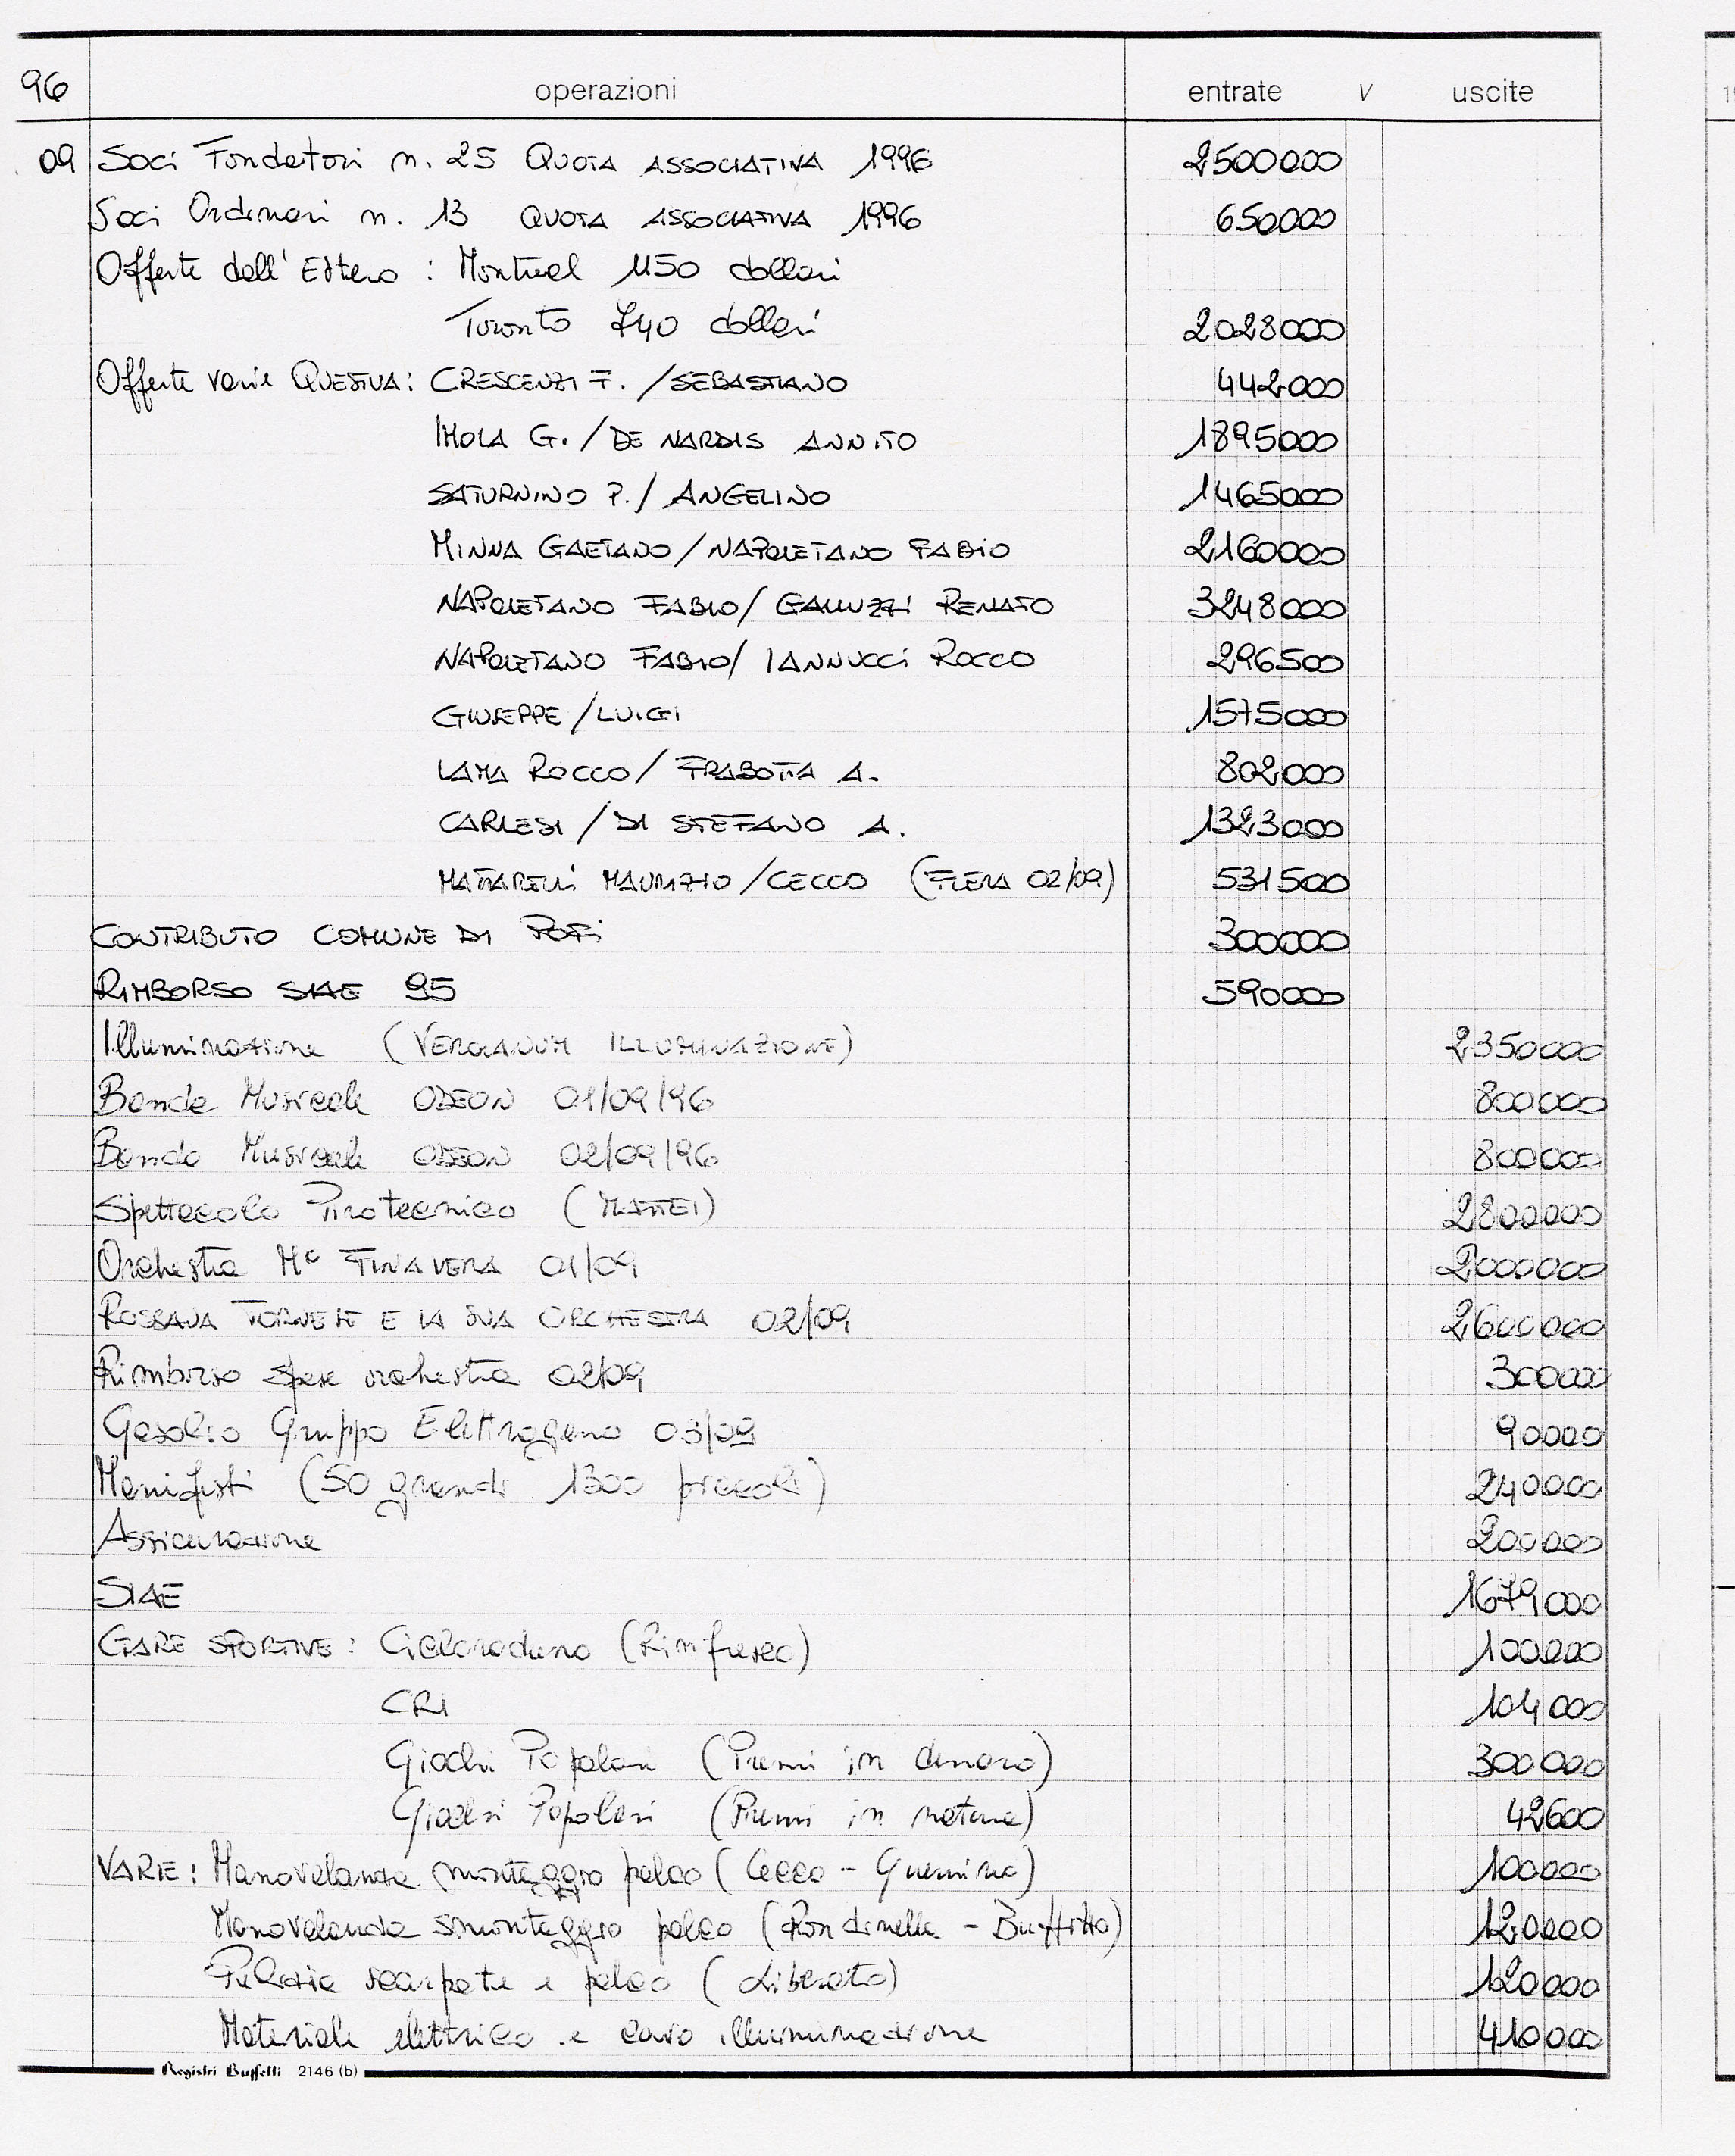 96 operazioni entrate V uscite
09 Soci Fondatori n. 25 QUOTA ASSOCIATIVA 1996 2500000
Soci Ordinari n. 13 QUOTA ASSOCIATIVA 1996 650000
Offerte dall'Estero : Montreal 1150 dollari
Toronto 740 dollari 2028000
Offerte varie QUESTUA: CRESCENZI F. / SEBASTIANO 442000
IMOLA G. / DE NARDIS ANNITO 1895000
SATURNINO P. / ANGELINO 1465000
MINNA GAETANO / NAPOLETANO FABIO 2160000
NAPOLETANO FABIO / GALLUZZI RENATO 3248000
NAPOLETANO FABIO / IANNUCCI ROCCO 296500
GIUSEPPE / LUIGI 1575000
LAMA ROCCO / FRABOTTA A. 802000
CARLESI / DI STEFANO A. 1323000
MATTARELLI MAURIZIO / CECCO (FIERA 02/09) 531500
CONTRIBUTO COMUNE DI POFI 300000
RIMBORSO SIAE 95 590000
Illuminazione (VEROLANUM ILLUMINAZIONE) 2350000
Banda Musicale ODEON 01/09/96 800000
Banda Musicale ODEON 02/09/96 800000
Spettacolo Pirotecnico (MATTEI) 2800000
Orchestra Mº TINAVERA 01/09 2000000
ROSSANA E LA SUA ORCHESTRA 02/09 2600000
Rimborso spese orchestra 02/09 300000
Gasolio Gruppo Elettrogeno 03/09 90000
Manifesti (50 grandi 1300 piccoli) 240000
Assicurazione 200000
SIAE 1679000
GARE SPORTIVE : Cicloraduno (Rinfresco) 100000
CRI 104000
Giochi Popolari (Premi in denaro) 300000
Giochi Popolari (Premi in natura) 42600
VARIE : Manovalanza montaggio palco (Cecco - Guerrino) 100000
Manovalanza smontaggio palco (Rondinella - ) 120000
Pulizia scarpate e palco (Liberato) 120000
Materiale elettrico e cavo illuminazione 410000
Registri Buffetti 2146 (b)